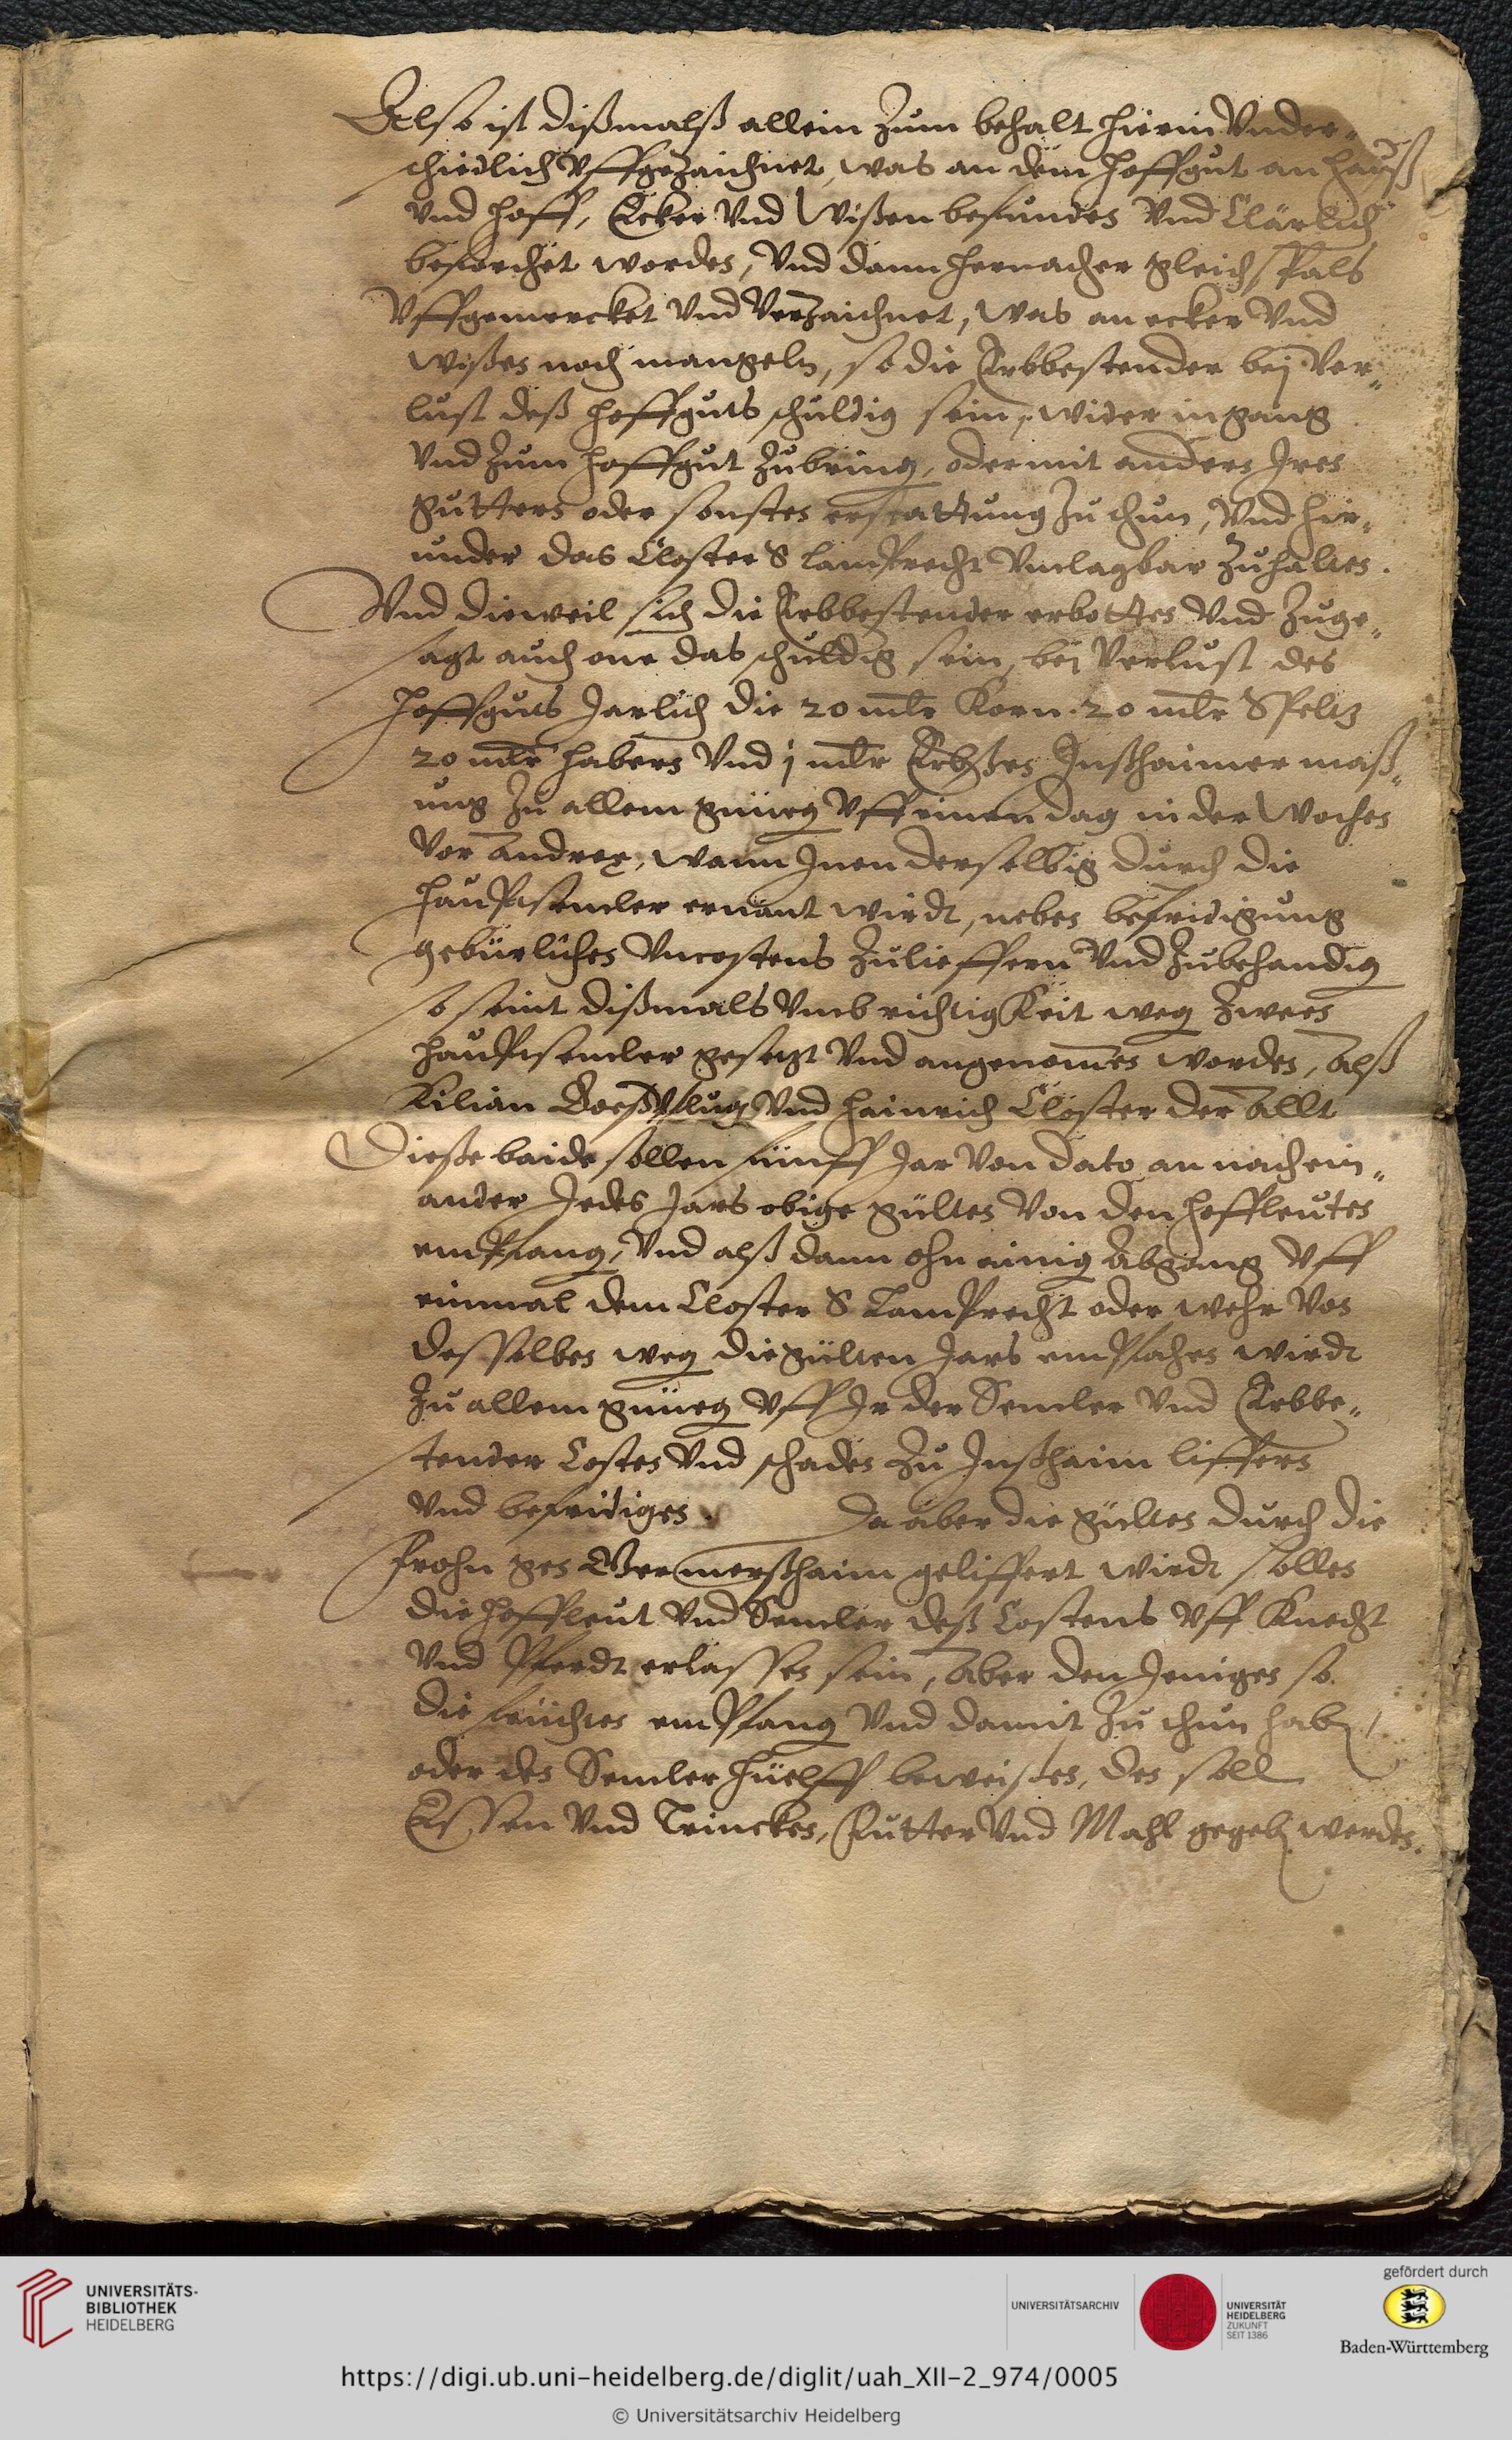 Also ist dißmalß allein zum behalt hierin Vnder„
schiedlich Vffgezaichnet, was an dem hoffgut an hauß
Vnd hoff, Ecker Vnd Wißen befunden Vnd Clärlich
beforchet worden, Vnd dann hernacher gleichsfals
Vffgemercket Vnd Verzaichnet, was an ecker Vnd
wißen noch mangeln, so die Erbbestender bej Ver„
lust deß hoffguts schuldig sein, wider in gang
Vnd zum hoffgut zubring, oder mit andern Iren
guttern oder sonsten erstattung zu thun, Vnd hir„
under das Closter S Lamprecht Vnclagbar zuhalten.
Vnd dieweil sich die Erbbestender erbotten Vnd zuge„
sagt auch one das schuldig sein, bej Verlust des
hoffguts Jarlich die 20 mlr Korn 20 mlr Speltz
20 mlr habern Vnd j mlr Erbßen Inßhaimer maß„
ung zu allem Vff einen dag in der Wochen
Vor andree, wann Inen derselbig durch die
hauptsemler ernant wirdt, neben befridigung
gebürliches Vncostens zulieffern Vnd zubehandig
so seint dißmals Vmb richtigkeit weg zween
hauptsemler gesetzt Vnd angenommen worden, alß
Kilian Vnd hainrich Closter der allt
Dieße baide sollen fünff Jar Von dato an nach ein„
ander Jedes Jars obige gülten Von den hoffleuten
empfang, Vnd alß dann ohn ainig Abgang Vff
einmal dem Closter S Lamprecht oder wehr Von
desselben weg die gülten Jars empfahen wirdt
zu allem Vff Ir der Semler Vnd Erbbe„
stender Costen Vnd schaden zu Inßhaim liffern
Vnd befridigen. Da aber die gülten durch die
frohn gen Germerßhaim geliffert wirdt sollen
die hoffleut Vnd Semler deß Costens Vff Knecht
Vnd Pferdt erlassen sein, aber den Jenigen so
die früchten empfang Vnd damit zu thun hab,
oder den Semler hüelff beweisten, den soll
Essen Vnd Trincken, Futter Vnd Mahl gegeb werden.
UNIVERSITÄTS-
BIBLIOTHEK
HEIDELBERG
UNIVERSITÄTSARCHIV
UNIVERSITÄT
HEIDELBERG
ZUKUNFT
SEIT 1386
gefördert durch
Baden-Württemberg
https://digi.ub.uni-heidelberg.de/diglit/uah_XII-2_974/0005
© Universitätsarchiv Heidelberg